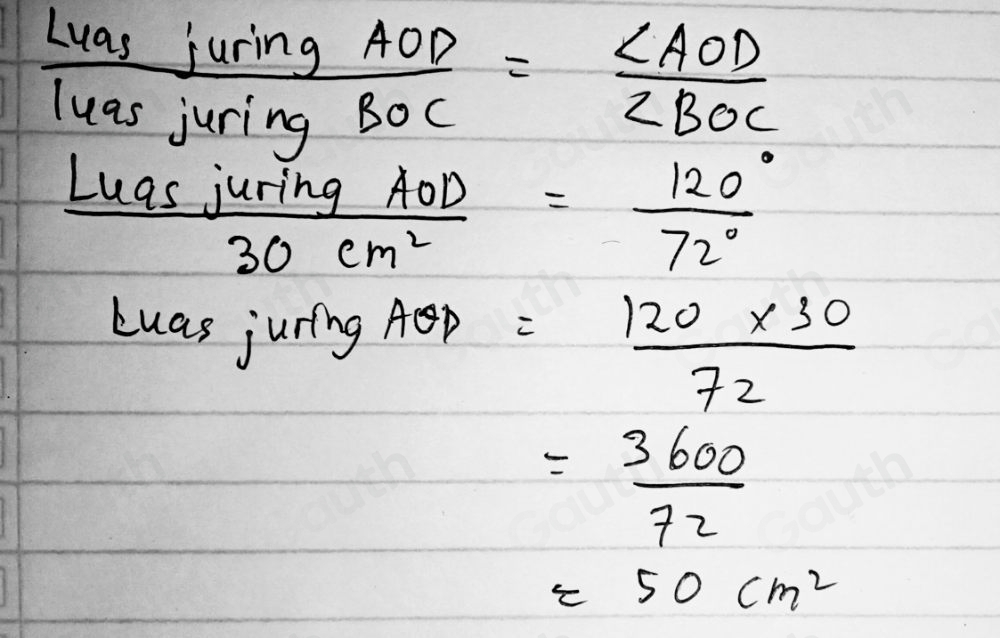 Luas juring AOD = <AOD
luas juring BOC <BOC
Luas juring AOD = 120°
30 cm² 72°
Luas juring AOD = 120 x 30
72
= 3600
72
= 50 cm²